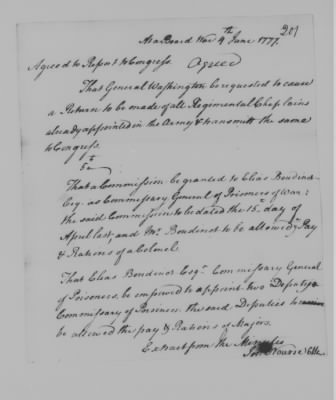 201
At a Board War 4th June 1777.
Agreed to Report to Congress. Agreed
That General Washington be requested to cause
a Return to be made of all Regimental Chaplains
already appointed in the Army & transmitt the same
to Congress.
5th
That a Commission be granted to Elias Boudinot
Esq. as Commissary General of Prisoners of War;
the said Commission to be dated the 15th day of
April last, and Mr. Boudinot to be allowed ye Pay
& Rations of a Colonel.
That Elias Boudinot Esqr. Commissary General
of Prisoners, be impowered to appoint two Deputy
Commissary of Prisoners the said Deputies to
be allowed the pay & Rations of Majors.
Extract from the Minutes
Jos. Nourse